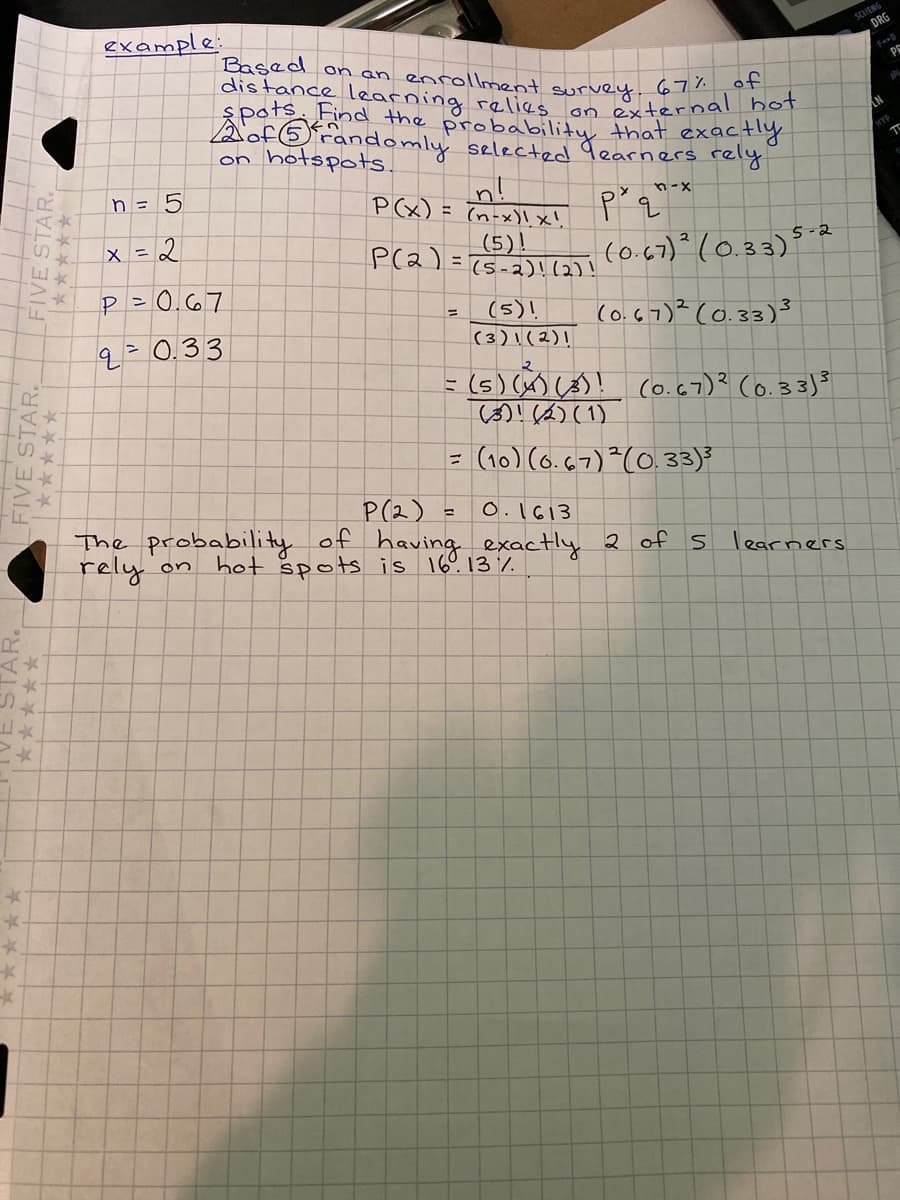 example:
Based on an enrollment survey, 67% of
distance learning relies on external hot
spots. Find the probability that exactly
2 of 5 ←n randomly selected learners rely
on hotspots.
n = 5
x = 2
p = 0.67
q = 0.33
P(x) = n! / (n-x)! x! p^x q^n-x
P(2) = (5)! / (5-2)! (2)! (0.67)² (0.33)^5-2
= (5)! / (3)! (2)! (0.67)² (0.33)³
= (5)(4)(3)! / (3)! (2)(1) (0.67)² (0.33)³
2
= (10)(0.67)²(0.33)³
P(2) = 0.1613
The probability of having exactly 2 of 5 learners
rely on hot spots is 16.13%.
FIVE STAR.
★★★★★
FIVE STAR.
★★★★★
FIVE STAR.
★★★★★
★★★★★
SCI/ENG
DRG
LN
HYP